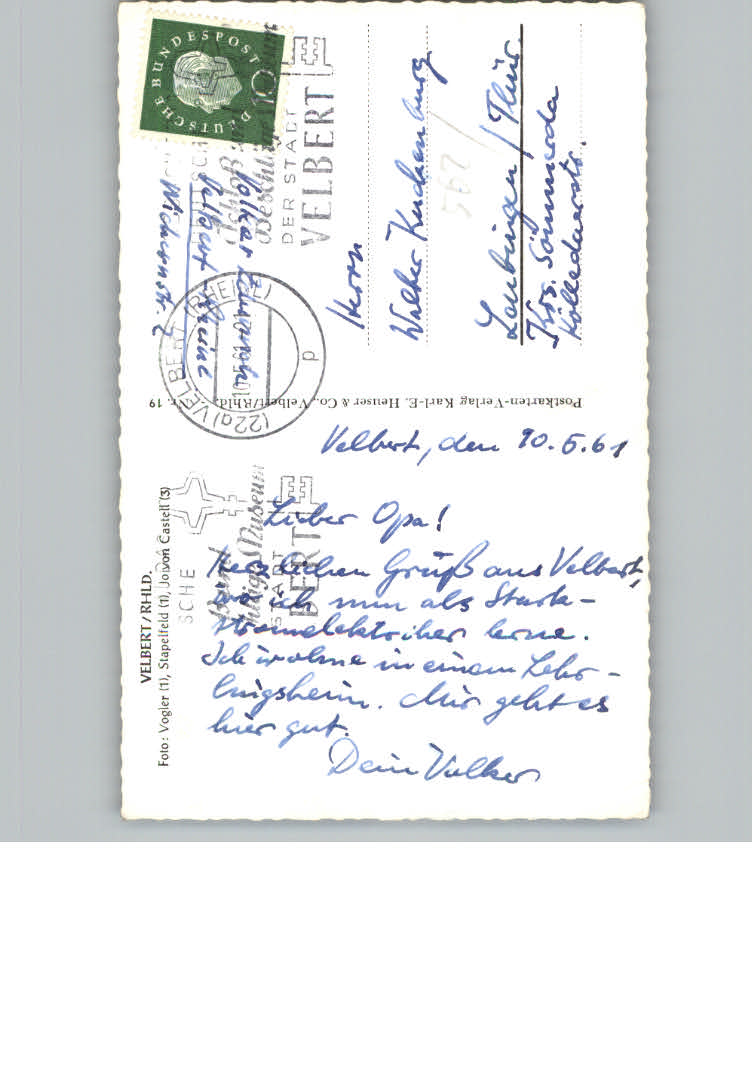 VELBERT / RHLD.
Foto: Vogler (1), Stapelfeld (1), Jo von Castell (3)
Velbert, den 10.5.61
Lieber Opa!
Herzlichen Gruß aus Velbert,
wo ich nun als Stark-
stromelektriker lerne.
Ich wohne in einem Lehr-
lingsheim. Mir geht es
hier gut.
Dein Volker
Postkarten-Verlag Karl-E. Heuser & Co., Velbert/Rhld. Nr. 19
DEUTSCHE BUNDESPOST
10
Schloß
Beschläge
DER STADT
VELBERT
(22a) VELBERT (RHEINL)
10.5.61
p
SCHE
Museum
STADT
BERT
Volker
Velbert Rheinl
Herrn
Walter
Leubingen / Thür.
Krs. Sömmerda
Kölledaerstr.
567